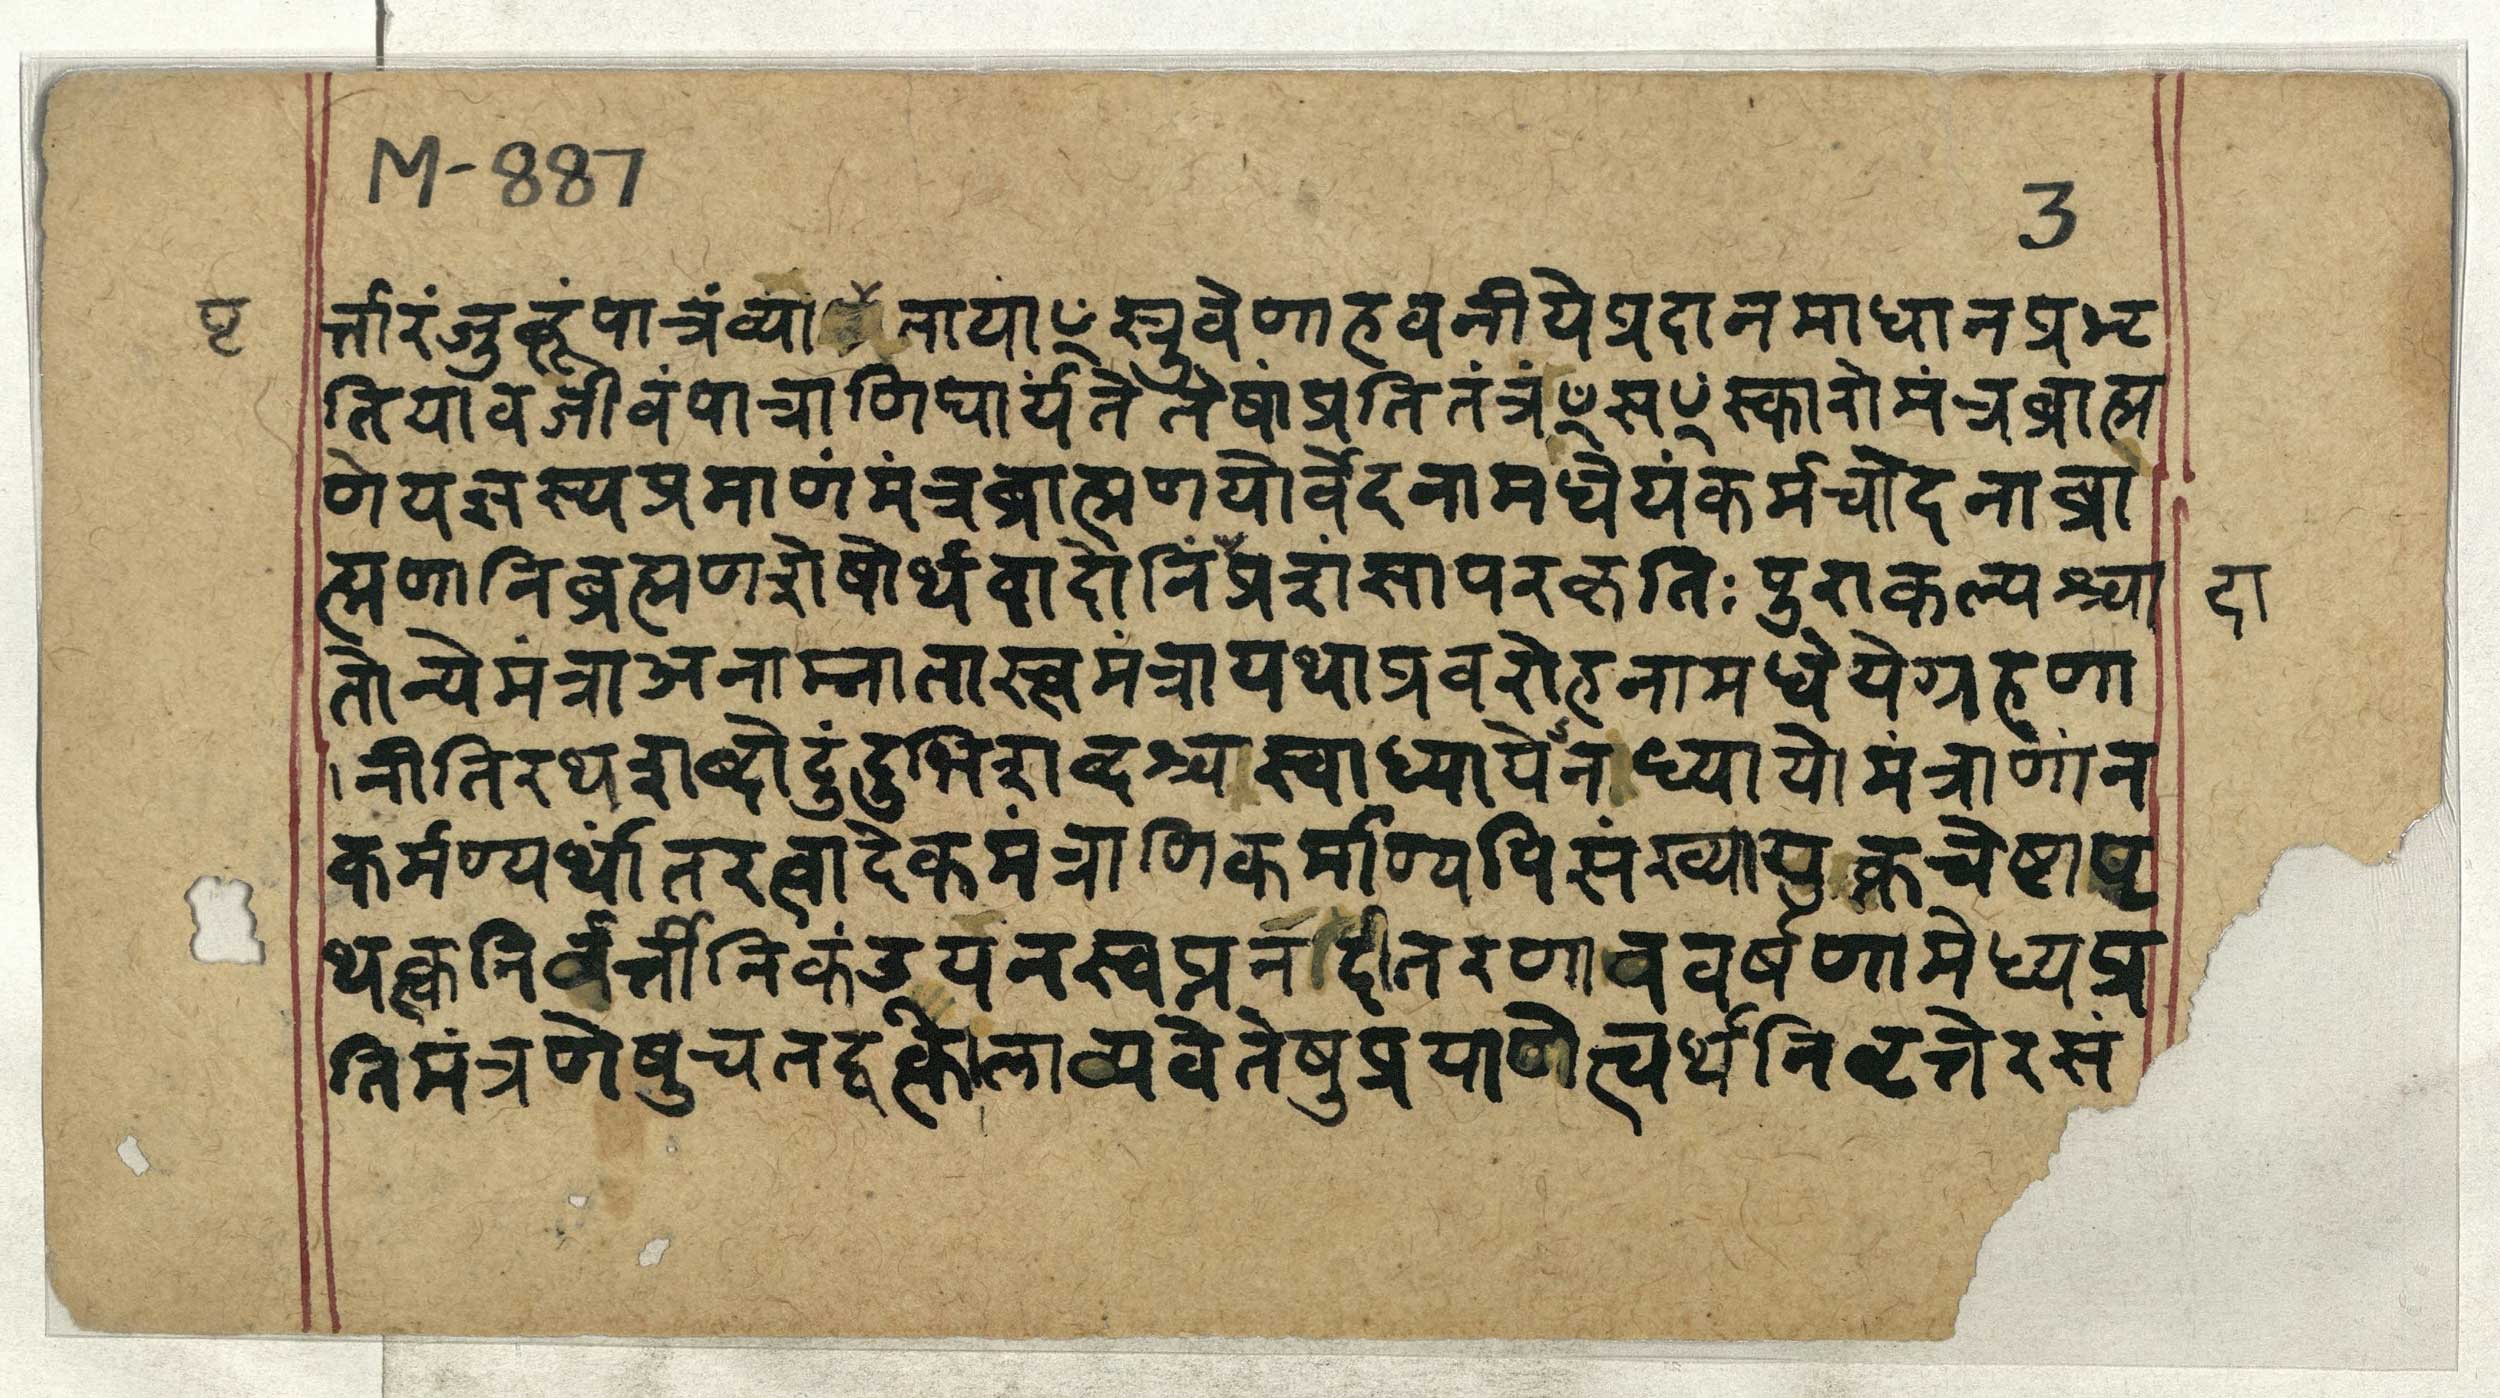 M-887
3
र्त्तारंजुहूंपात्रंव्या लायाꣳस्रुवेणाहवनीयेप्रदानमाधानप्रभृ
तियावजीवंपात्राणिधार्यतेतेषांप्रतितंत्रंꣳसꣳस्कारोमंत्रब्राह्म
णेयज्ञस्यप्रमाणंमंत्रब्राह्मणयोर्वेदनामधेयंकर्मचोदनाब्रा
ह्मणानिब्रह्मणशेषोर्थवादोनिंप्रशंसापरकृतिःपुराकल्पश्चा दा
तोन्येमंत्राअनाम्नातास्त्वमंत्रायथाप्रवरोहनामधेयेग्रहणा
नीतिरथशब्दोदुंदुभिशब्दश्चास्वाध्यायेनाध्यायोमंत्राणांन
कर्मण्यर्थांतरत्वादेकमंत्राणिकर्माण्यपिसंख्यायुक्तचेष्टापृ
थक्त्वनिर्वर्त्तीनिकंडयनस्वप्ननदीतरणाववर्षणामेध्यप्र
तिमंत्रणेषुचतद्वत्कालाव्यवेतेषुप्रयाणेत्वर्थनिवृत्तेरसं